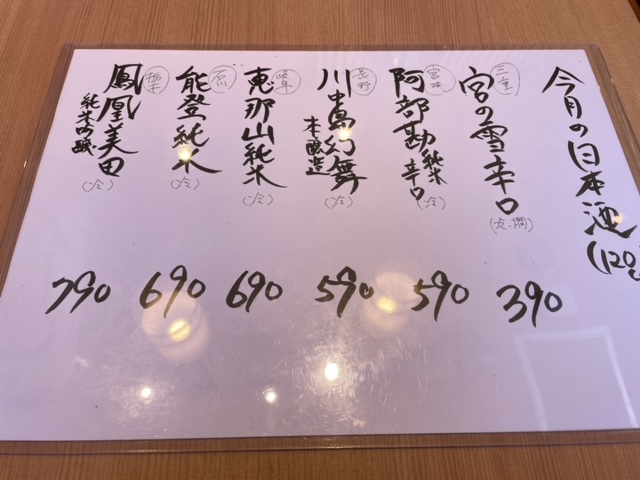 今月の日本酒(120
三重
宮の雪辛口
390
宮城
阿部勘純米辛口(冷)
590
長野
川中島幻舞本醸造(冷)
590
岐阜
恵那山純米(冷)
690
石川
能登純米(冷)
690
栃木
鳳凰美田純米吟醸(冷)
790